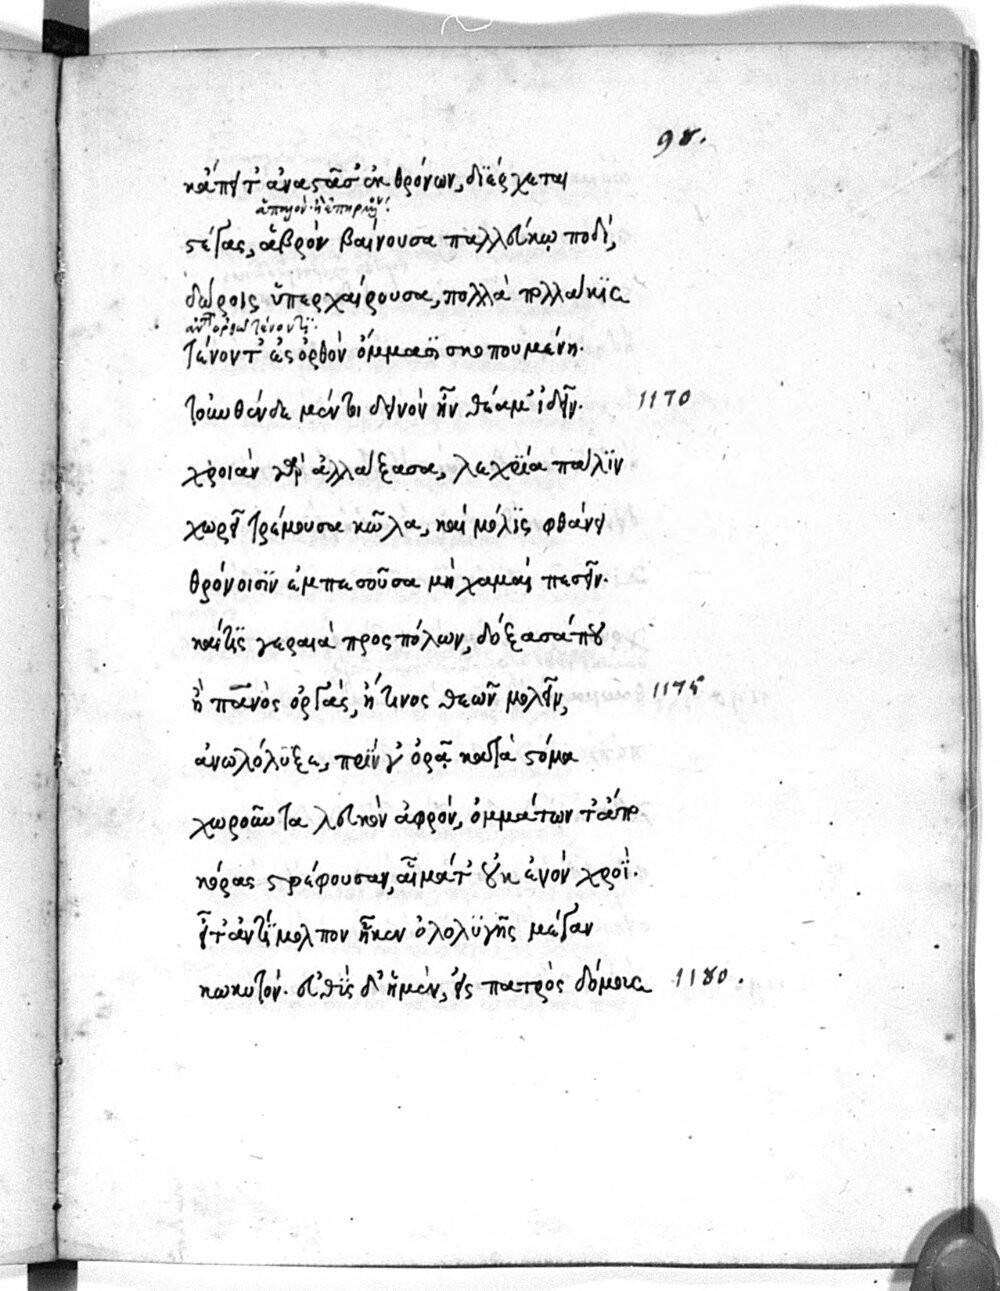 98.
κἄπειτ' ἀναστᾶσ' ἐκ θρόνων, διέρχεται
στέγας, ἁβρὸν βαίνουσα παλλεύκῳ ποδὶ,
δώροις ὕπερχαίρουσα, πολλὰ πολλάκις
τένοντ' ἐς ὀρθὸν ὄμμασι σκοπουμένη.
τοὐνθένδε μέντοι δεινὸν ἦν θέαμ' ἰδεῖν.  1170
χροιὰν γὰρ ἀλλάξασα, λεχρία πάλιν
χωρεῖ τρέμουσα κῶλα, καὶ μόλις φθάνει
θρόνοισιν ἐμπεσοῦσα μὴ χαμαὶ πεσεῖν.
καί τις γεραιὰ προσπόλων, δόξασά που
ἢ πανὸς ὀργὰς, ἤ τινος θεῶν μολεῖν,  1175
ἀνωλόλυξε, πρίν γ' ὁρᾷ κατὰ στόμα
χωροῦντα λευκὸν ἀφρὸν, ὀμμάτων τ' ἄπο
κόρας στρέφουσαν, αἷμά τ' οὐκ ἐνὸν χροΐ.
εἶτ' ἀντίμολπον ἧκεν ὀλολυγῆς μέγαν
κωκυτόν. εὐθὺς δ' ἡ μὲν, εἰς πατρὸς δόμους  1180.